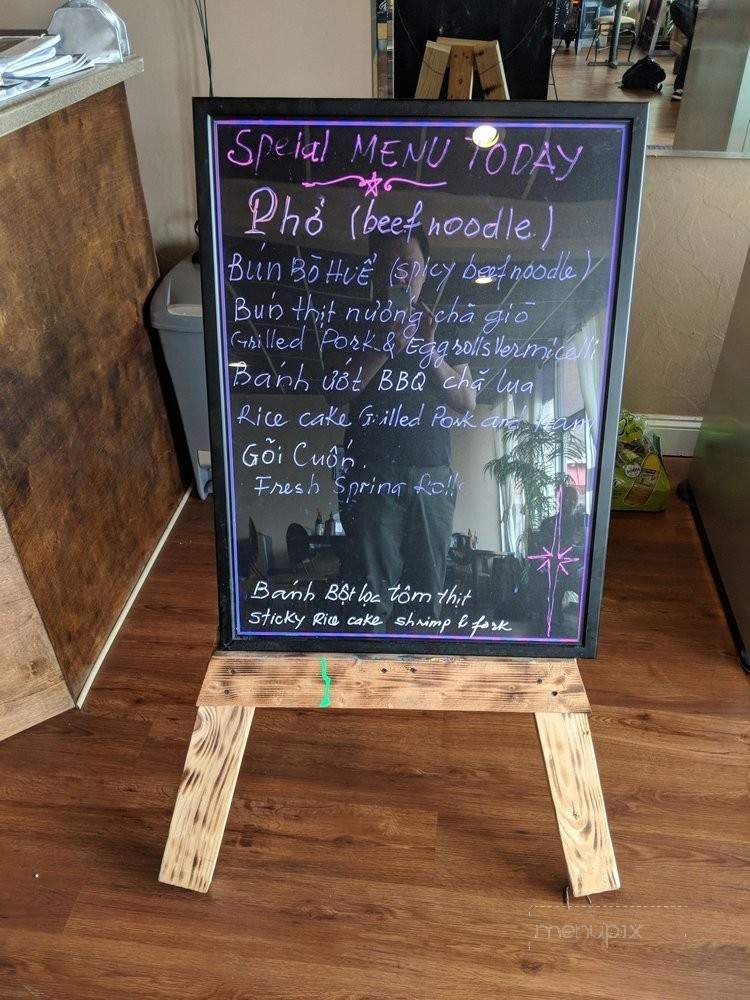 Speial MENU TODAY
Phở (beef noodle)
Bún Bò HUẾ (spicy beef noodle)
Bún thịt nướng chã giò
Grilled Pork & Eggrolls Vermicelli
Bánh ướt BBQ chã lụa
Rice cake Grilled Pork and Ham
Gõi Cuốn.
Fresh Spring Rolls
Bánh Bột lọc tôm thịt
Sticky Rice cake shrimp & Pork
menupix